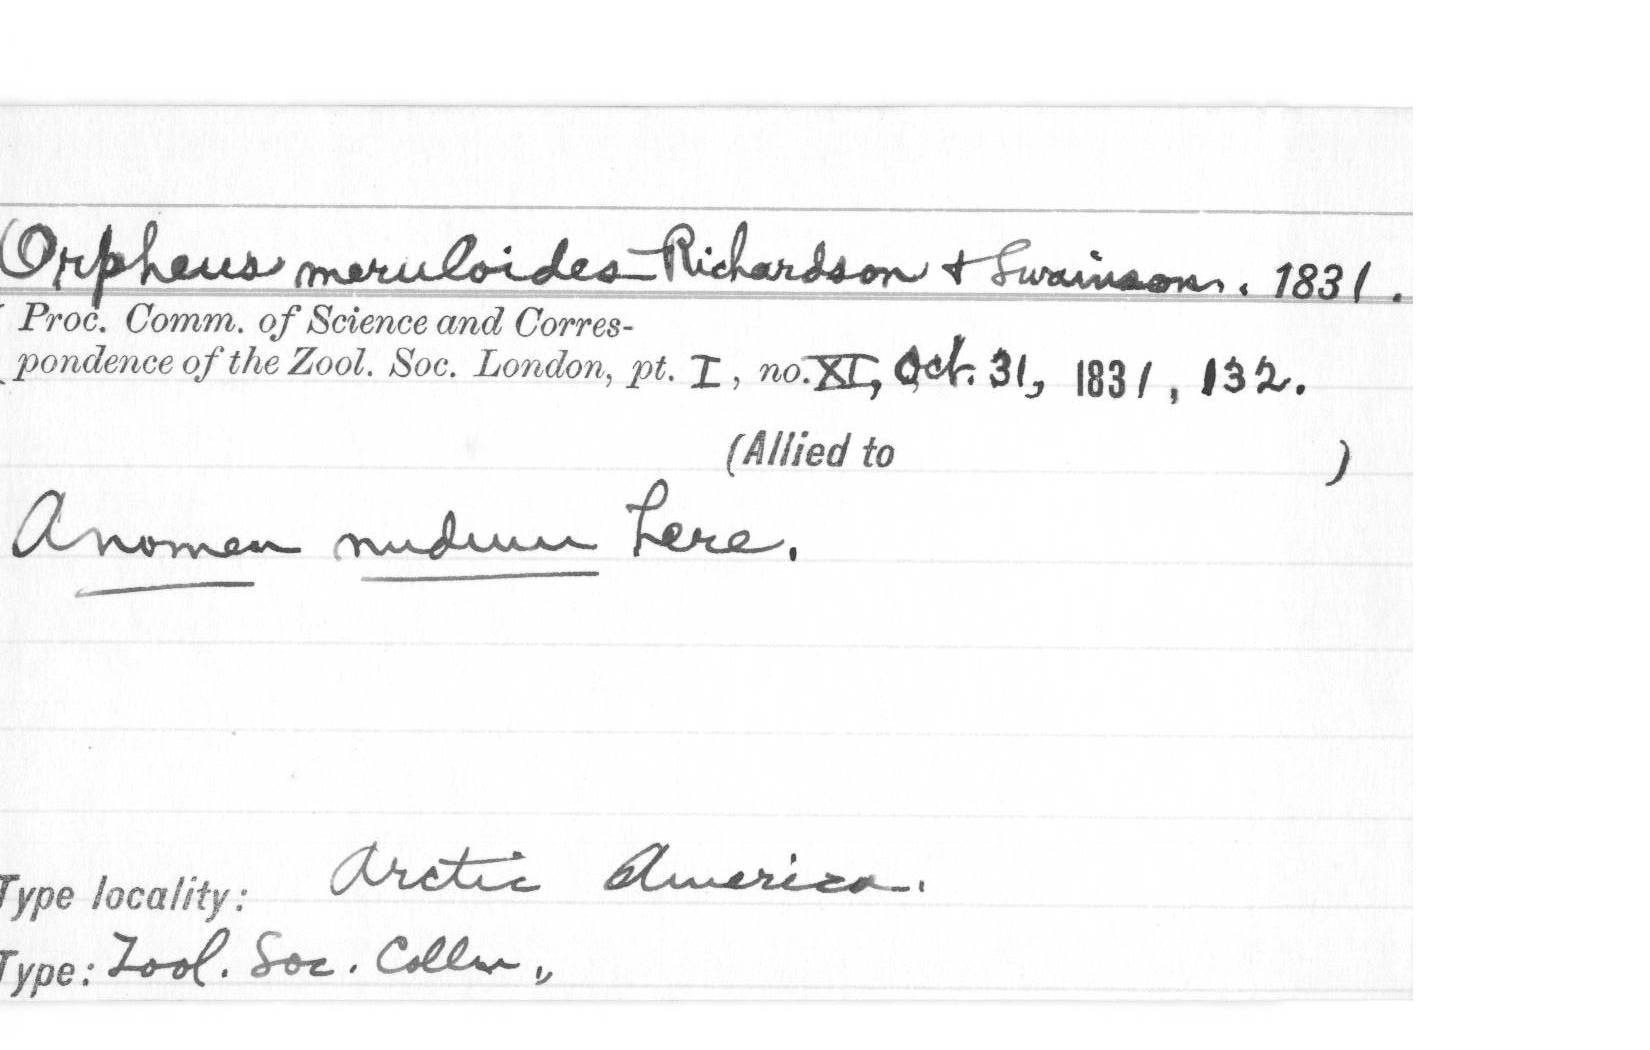 Orpheus meruloides Richardson & Swainson. 1831.
Proc. Comm. of Science and Corres-
pondence of the Zool. Soc. London, pt. I, no. XI, Oct. 31, 1831, 132.
(Allied to )
A nomen nudum here.
Type locality: Arctic America.
Type: Zool. Soc. Colln.,